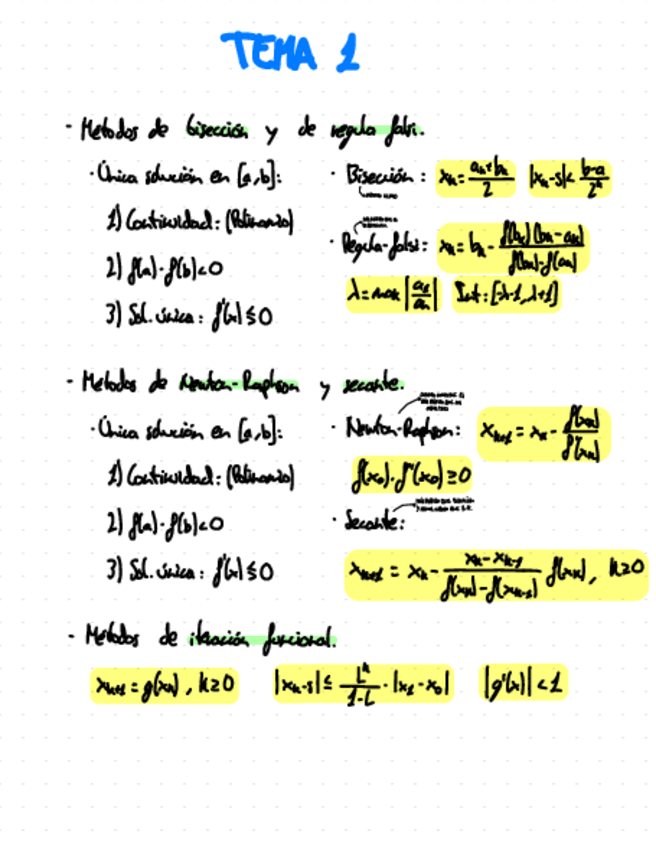 TEMA 1
· Metodos de bisección y de regula falsi.
· Única solución en [a,b]:
1) Continuidad: (Polinomio)
2) f(a)·f(b)<0
3) Sol. única: f'(x)≤0
· Bisección: xₙ = (aₙ+bₙ)/2 |xₙ-s|< (b-a)/2ⁿ
· Regula-falsi: xₙ = bₙ - f(bₙ)(bₙ-aₙ)/(f(bₙ)-f(aₙ))
λ = max |aᵢ/aₙ| Int: [-λ-1, λ+1]
· Metodos de Newton-Raphson y secante.
· Única solución en [a,b]:
1) Continuidad: (Polinomio)
2) f(a)·f(b)<0
3) Sol. única: f'(x)≤0
· Newton-Raphson: xₖ₊₁ = xₙ - f(xₙ)/f'(xₙ)
f(x₀)·f''(x₀) ≥0
· Secante:
xₖ₊₁ = xₖ - (xₖ-xₖ₋₁)/(f(xₖ)-f(xₖ₋₁)) f(xₖ), k≥0
· Metodos de iteración funcional.
xₖ₊₁ = g(xₖ), k≥0 |xₖ-s| ≤ Lᵏ/(1-L) · |x₁-x₀| |g'(x)| <1